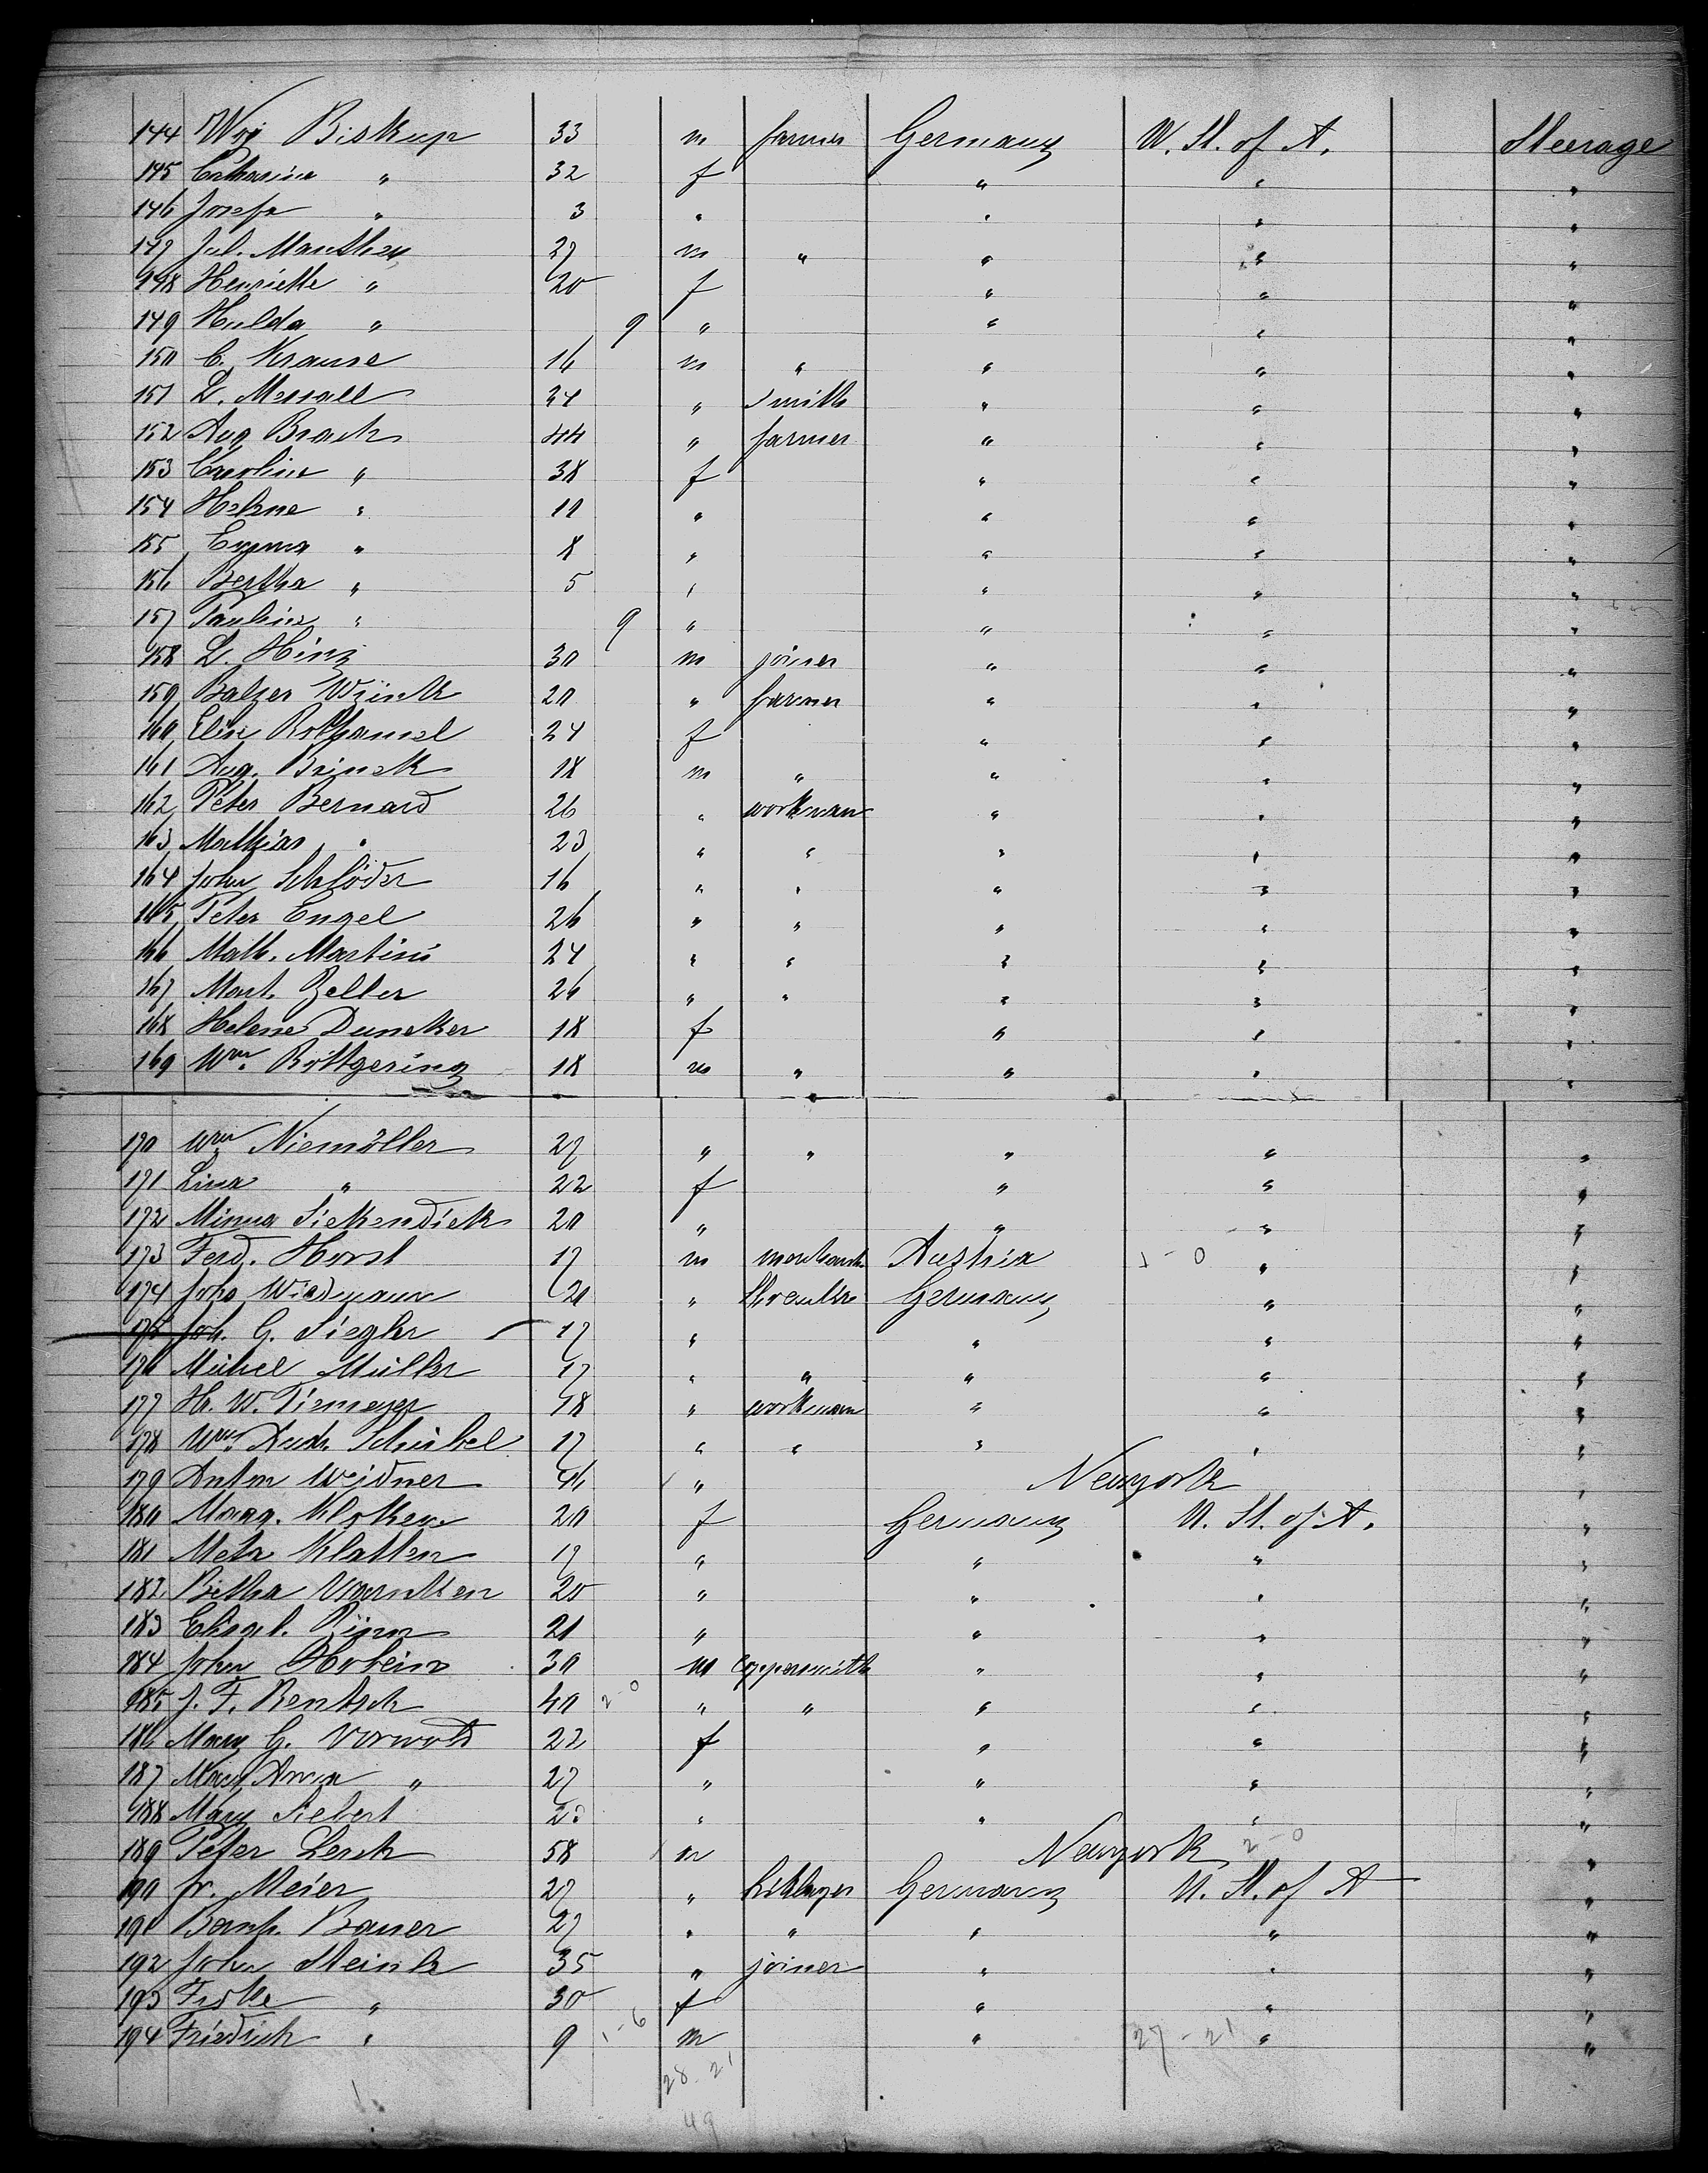 144 Woj Biskup 33 m farmer Germany U. St. of A. Steerage
145 Catharina " 32 f " " "
146 Josefa " 3 " " " "
147 Jul. Manthey 27 m " " " "
148 Henriette " 20 f " " "
149 Hulda " 9 " " " "
150 C. Krause 16 m " " " "
151 L. 34 " Smith " " "
152 Aug Brach 44 " farmer " " "
153 Caroline " 38 f " " "
154 Helene " 11 " " " "
155 Emma " 8 " " " "
156 Bertha " 5 " " " "
157 Pauline " 9 " " " "
158 L. Hinz 30 m joiner " " "
159 Balzer 20 " farmer " " "
160 Elise Rothamel 24 f " " "
161 Aug. 18 m " " " "
162 Peter Bernard 26 " workman " " "
163 Mathias " 23 " " " " "
164 John Schlöder 16 " " " " "
165 Peter Engel 26 " " " " "
166 Math. Martini 24 " " " " "
167 Mart. Zeller 26 " " " " "
168 Helene Duncker 18 f " " "
169 Wm. Röttgering 18 m " " " "
170 Wm Niemöller 27 " " " " "
171 Lina " 22 f " " "
172 Minna Siekendiek 20 " " " "
173 Ferd. Horst 17 m Austria 1-0 " "
174 John Wiedmann 21 " Germany " "
175 Joh. G. Siegler 17 " " " "
176 Michel Müller 17 " " " " "
177 Hr. W. Tiemeyer 18 " workman " " "
178 Wm. Andr. 17 " " " " "
179 Anton Weidner 46 " Newyork "
180 Marg. 20 f Germany U. St. of A. "
181 Meta Klatten 17 " " " "
182 20 " " " "
183 Elisab. 21 " " " "
184 John Holbein 30 m Coppersmith " " "
185 J. F. Rentsch 40 2-0 " " " " "
186 Mary G. Vorwold 22 f " " "
187 Mary Anna " 27 " " " "
188 Mary Siebert " " " "
189 Peter Lerch 58 m Newyork 2-0 "
190 Fr. Meier 27 " Germany U. St. of A "
191 Bauer 27 " " " " "
192 John 35 " joiner " " "
193 " 30 f " " "
194 Friedrich " 9 1-6 m " 27-21 " "
28-21
49